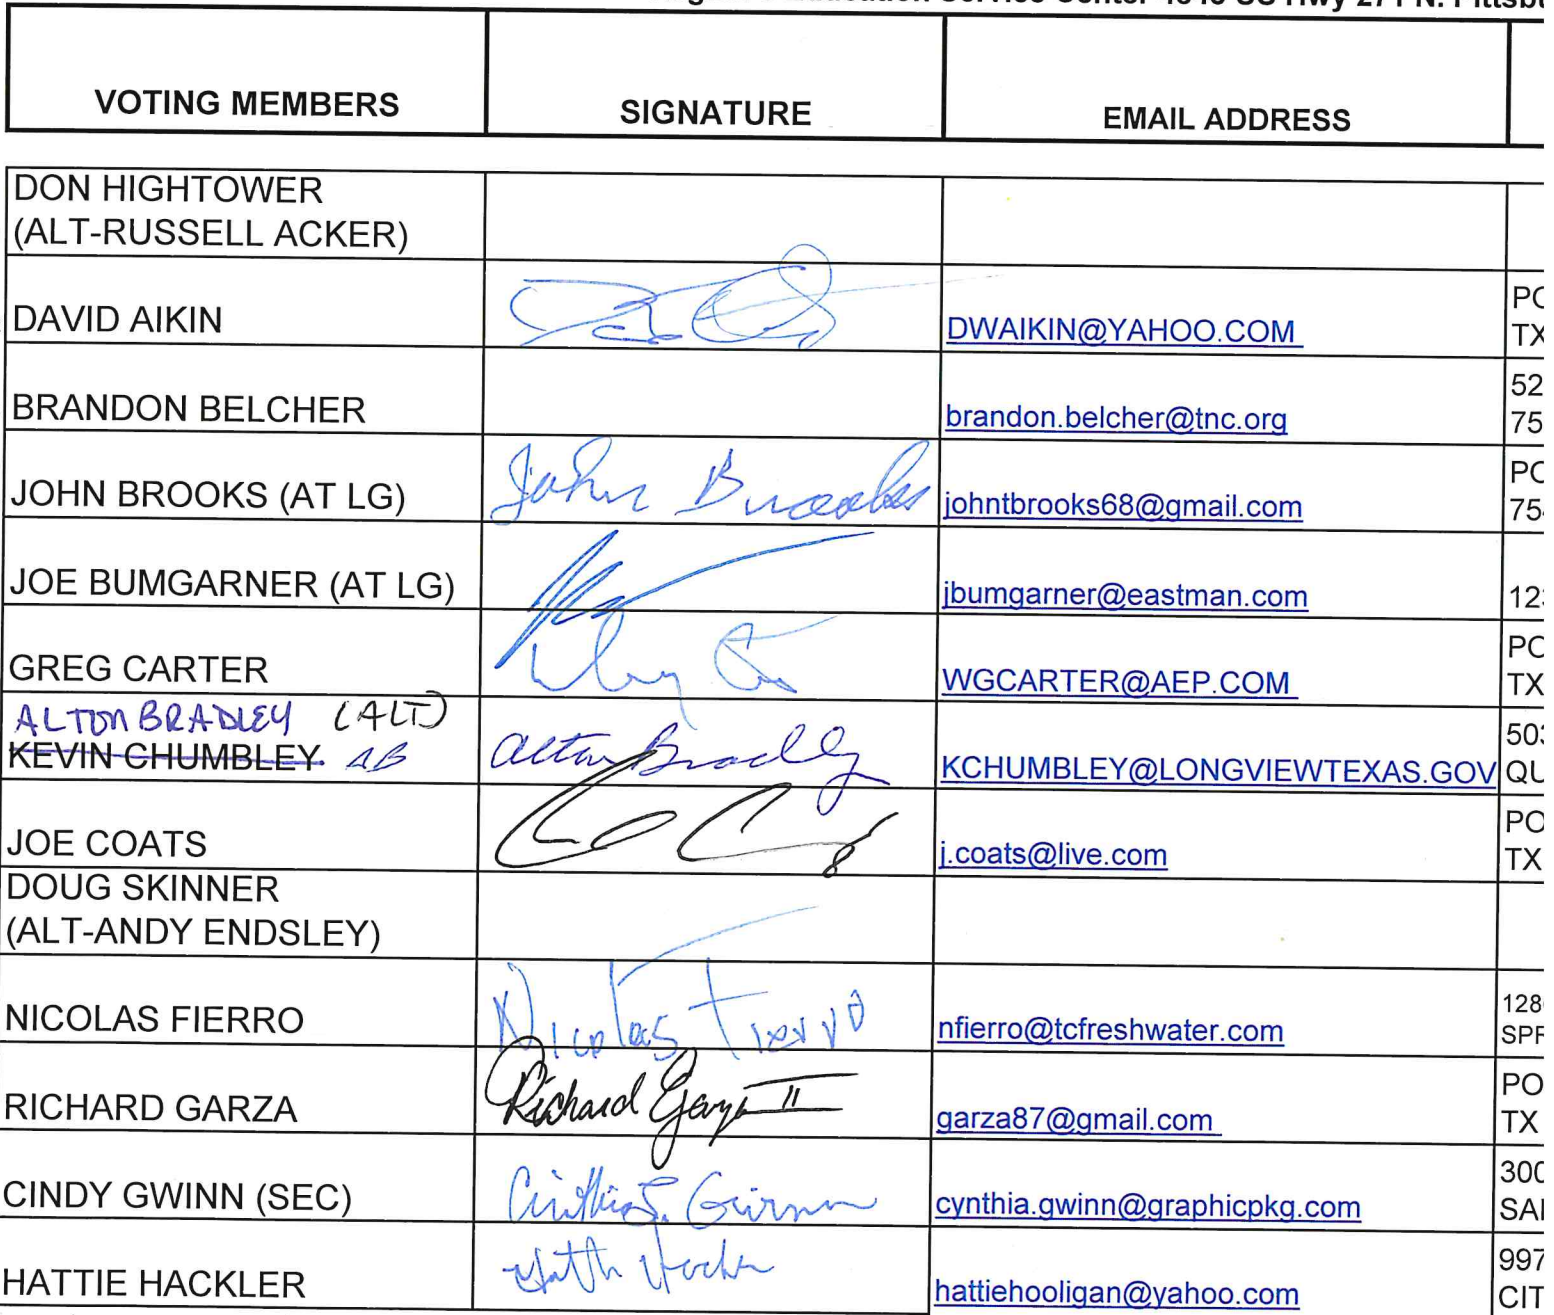 Service Center US Hwy 271 N.
VOTING MEMBERS SIGNATURE EMAIL ADDRESS
DON HIGHTOWER
(ALT-RUSSELL ACKER)
PO
DAVID AIKIN DWAIKIN@YAHOO.COM TX
52
BRANDON BELCHER brandon.belcher@tnc.org 75
PO
JOHN BROOKS (AT LG) John Brooks johntbrooks68@gmail.com 754
JOE BUMGARNER (AT LG) jbumgarner@eastman.com 123
PO
GREG CARTER WGCARTER@AEP.COM TX
ALTON BRADLEY (ALT) 503
KEVIN CHUMBLEY AB Alton Bradley KCHUMBLEY@LONGVIEWTEXAS.GOV QU
PO
JOE COATS j.coats@live.com TX
DOUG SKINNER
(ALT-ANDY ENDSLEY)
128
NICOLAS FIERRO Nicolas Fierro nfierro@tcfreshwater.com SPR
PO
RICHARD GARZA Richard Garza II garza87@gmail.com TX
300
CINDY GWINN (SEC) Cinthia S. Gwinn cynthia.gwinn@graphicpkg.com SAI
997
HATTIE HACKLER Hattie Hackler hattiehooligan@yahoo.com CIT